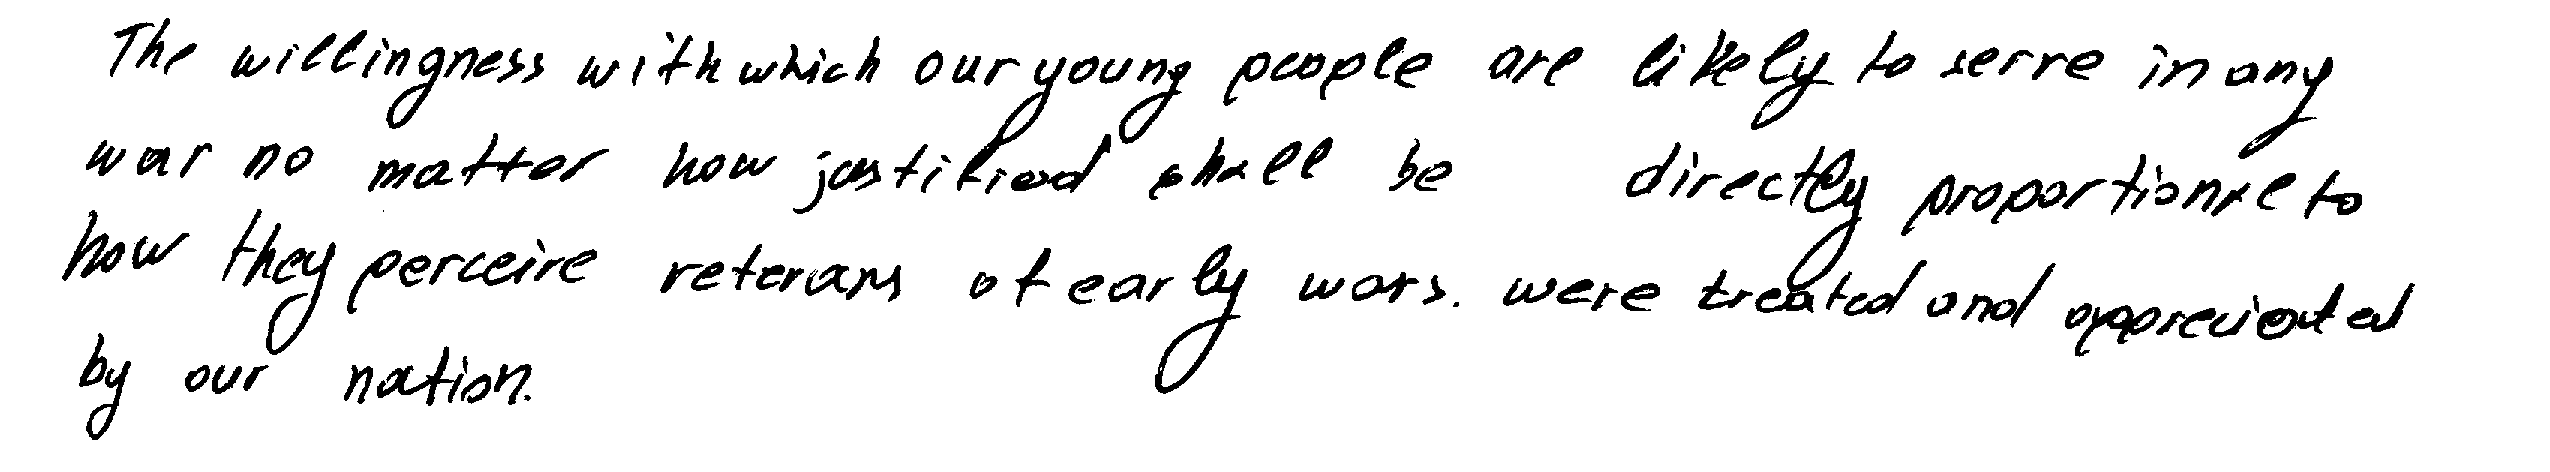 The willingness with which our young people are likely to serve in any
war no matter how justified shall be directly proportional to
how they perceive veterans of early wars. were treated and appreciated
by our nation.